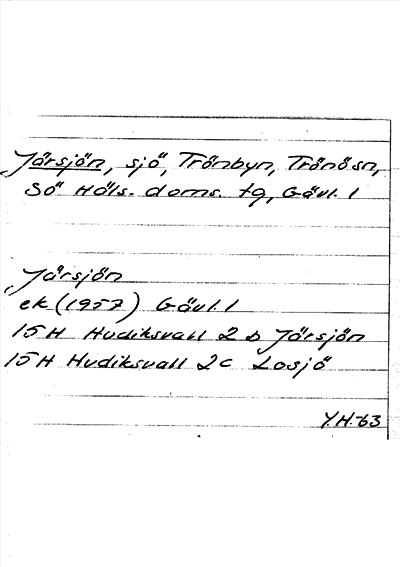 Järsjön, sjö, Trönbyn, Trönösn,
Sö Häls. doms. tg, Gävl. l
Järsjön
ek (1957) Gävl. l
15H Hudiksvall 2b Järsjön
15H Hudiksvall 2c Losjö
Y.H.-63